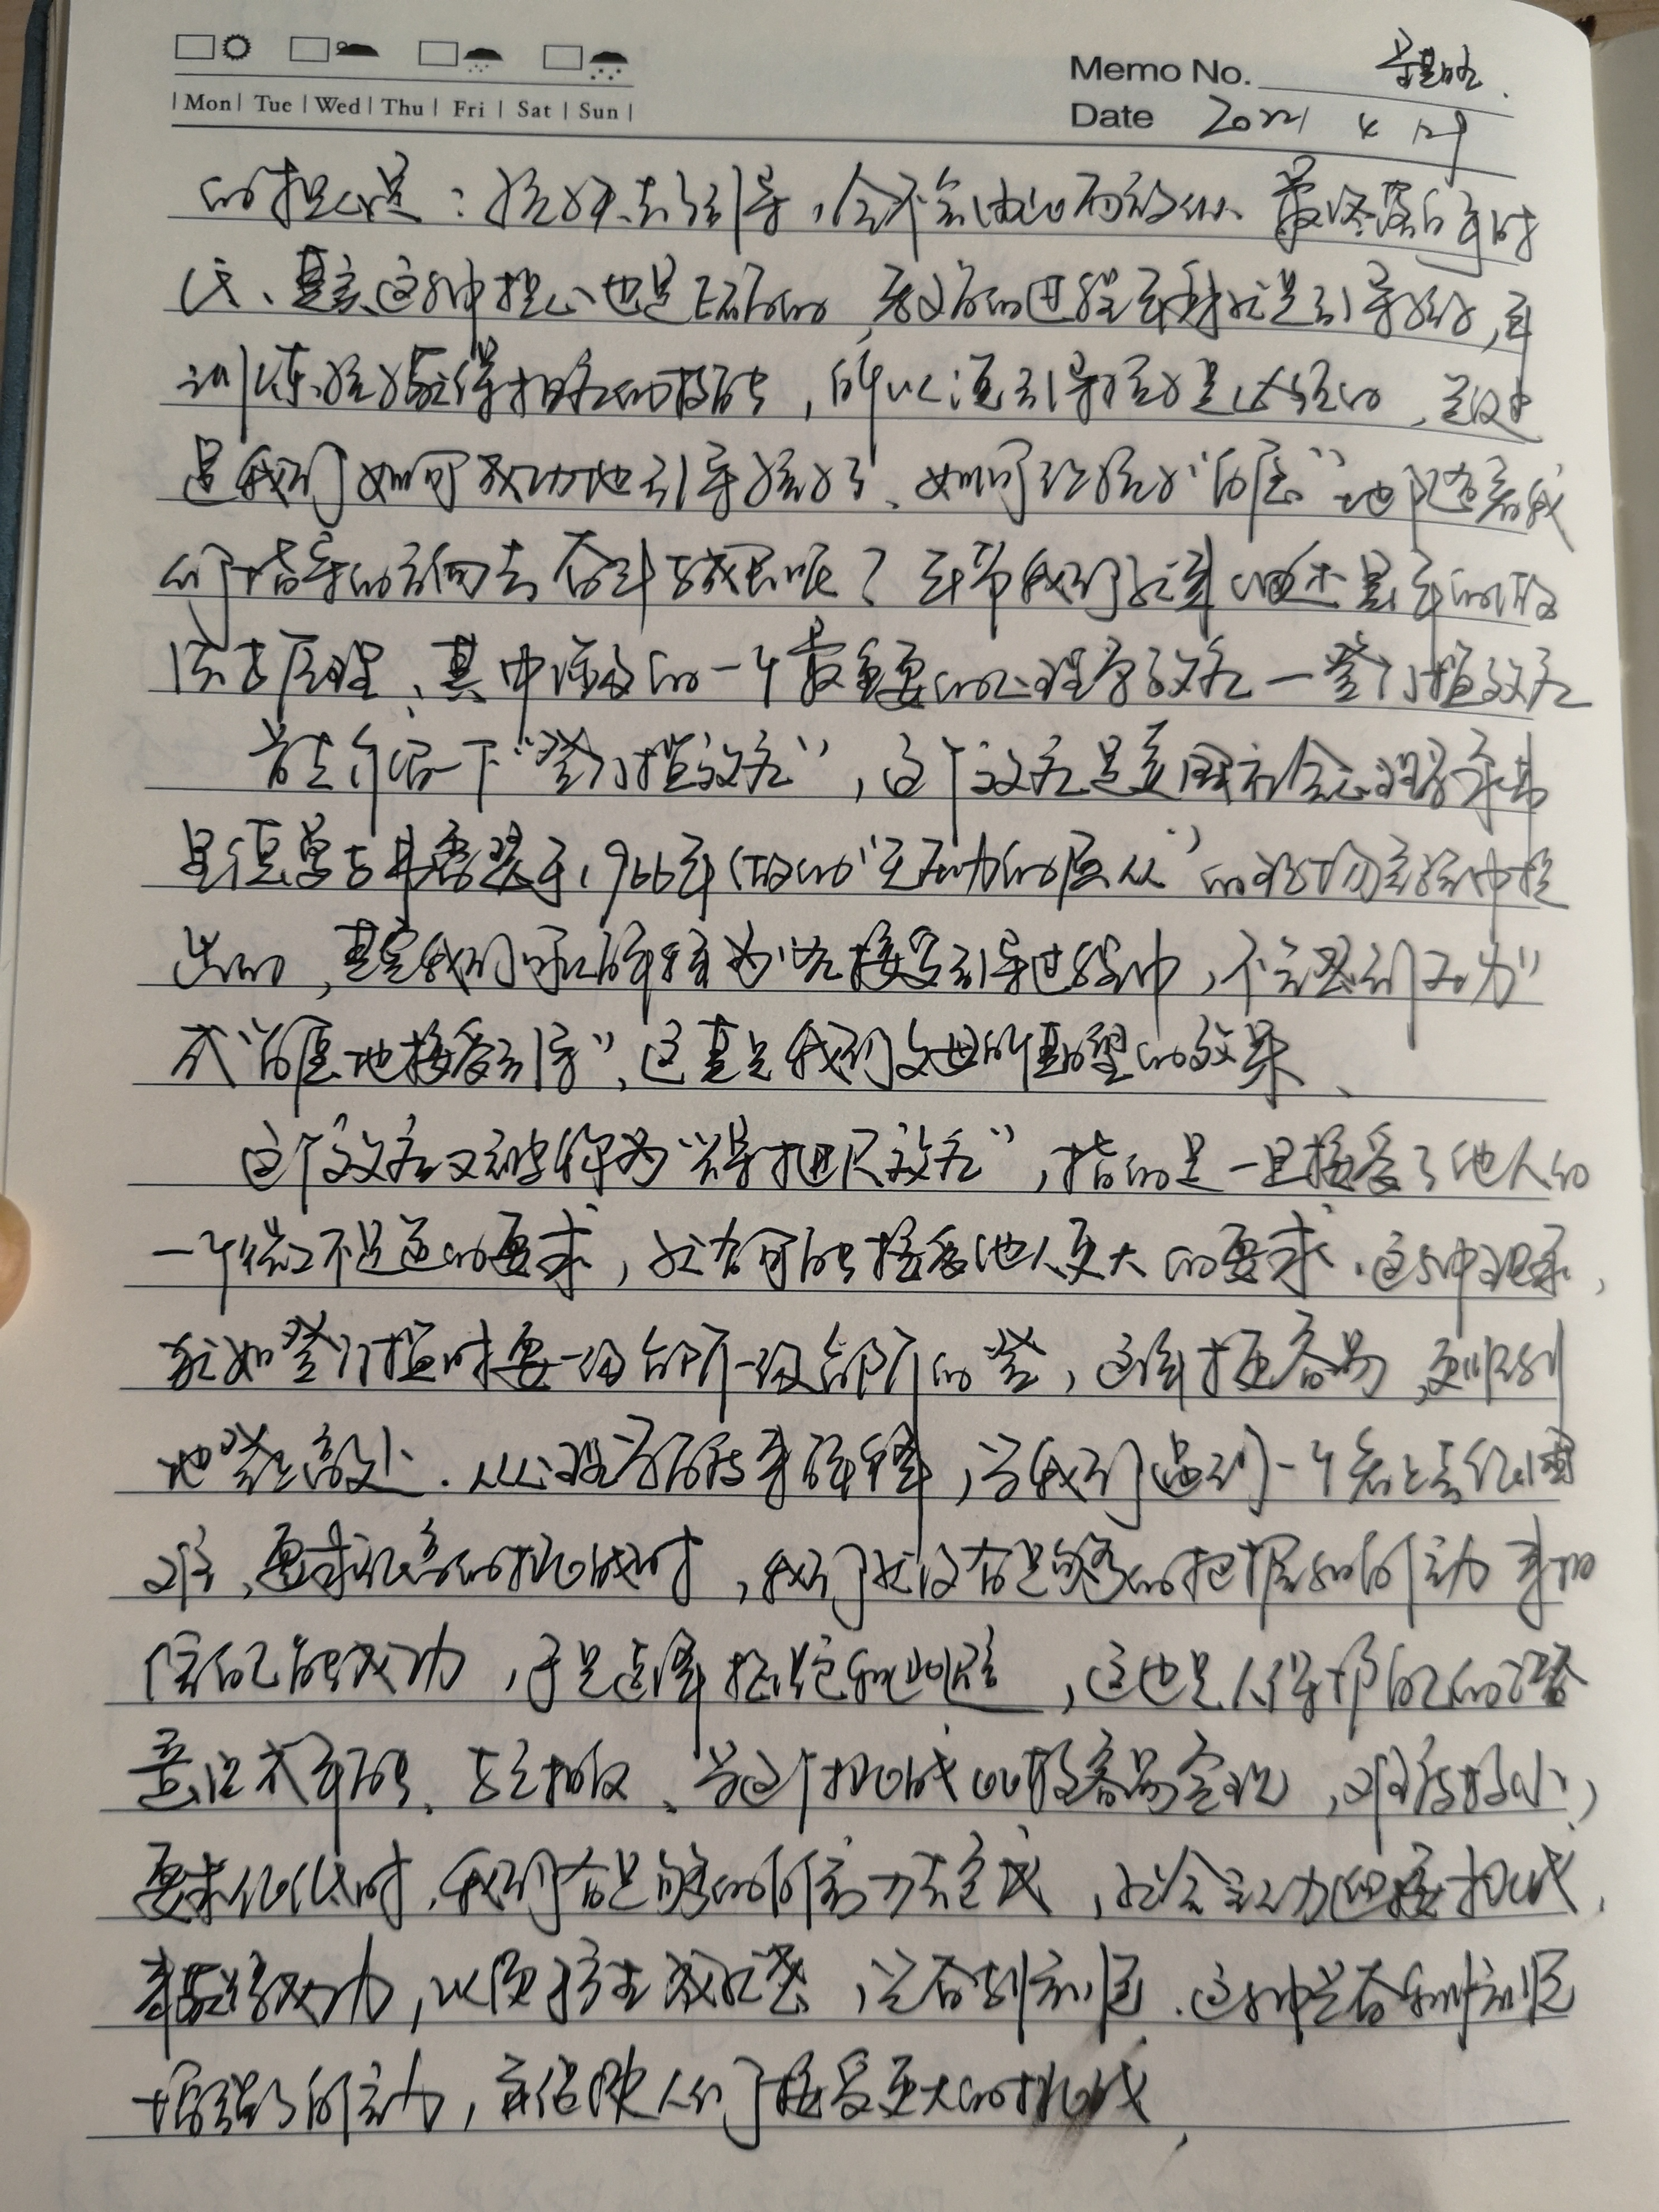 Mon Tue Wed Thu Fri Sat Sun
Memo No.
Date 2021 4 12日
的担心是：孩子不去引导，会不会由此而放纵、最终落后于时
代、其实这种担心也是正确的，教育的过程本身就是引导孩子，并
训练孩子获得相应的技能，所以说引导孩子是必须的，关键
是我们如何成功地引导孩子了、如何让孩子“自愿”地跟着我
们指导的方向去奋斗与成长呢？本节我们就来
法与原理、其中涉及的一个最重要的心理学效应一登门槛效应
首先介绍一下“登门槛效应”，这个效应是美国社会心理学家弗
里德曼与弗雷瑟于1966年做的“无压力的屈从”的现场实验中提
出的，其实我们可以解释为“在接受引导过程中，不会感到压力”
或“自愿地接受引导”，这真是我们父母所期望的效果、
这个效应又被称为“得寸进尺效应”，指的是一旦接受了他人的
一个微不足道的要求，就有可能接受他人更大的要求．这种现象，
犹如登门槛时要一级台阶一级台阶的登，这样才更容易，更顺利
地登上高处．从心理学角度来解释，当我们遇到一个看上去很困
难，要求很高的挑战时，我们就没有足够的把握和自信力来相
信自己能成功，于是选择拒绝和逃避，这也是人保护自己的潜
意识本能、与之相反、当这个挑战比较容易实现，难度较小，
要求很低时，我们有足够的自信力去完成，就会主动迎接挑战，
来获得成功，以便产生成就感，兴奋和满足．这种兴奋和满足
增强了自信力，并促使人们了接受更大的挑战